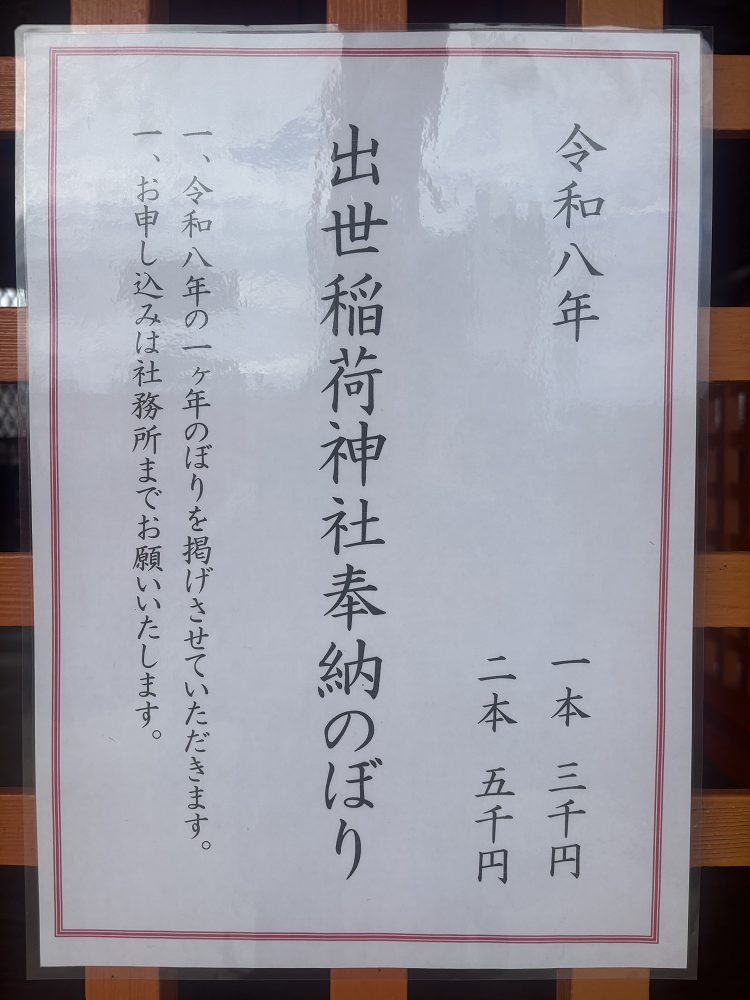 令和八年
一本 三千円
二本 五千円
出世稲荷神社奉納のぼり
一、令和八年の一ヶ年のぼりを掲げさせていただきます。
一、お申し込みは社務所までお願いいたします。